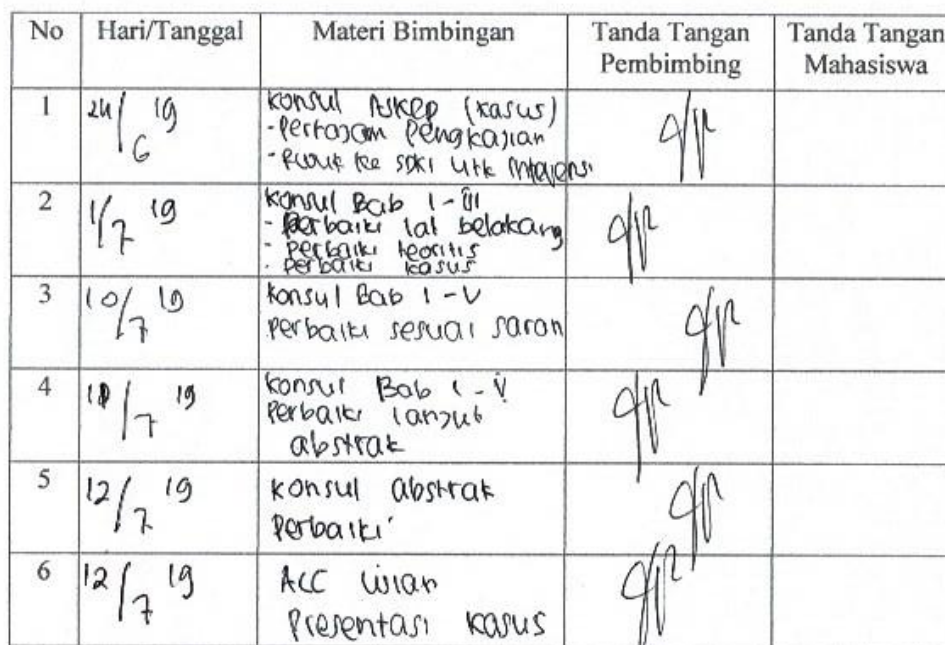 No Hari/Tanggal Materi Bimbingan Tanda Tangan Pembimbing Tanda Tangan Mahasiswa
1 24/6 19 Konsul Askep (kasus)
- Pertajam Pengkajian
- Rujuk ke SDKI utk intervensi
2 1/7 19 Konsul Bab I - III
- Perbaiki lat belakang
- Perbaiki teoritis
- Perbaiki kasus
3 10/7 19 Konsul Bab I - V
Perbaiki sesuai saran
4 /7 19 Konsul Bab I - V
Perbaiki lanjut
abstrak
5 12/7 19 Konsul abstrak
Perbaiki
6 12/7 19 ACC Ujian
Presentasi kasus